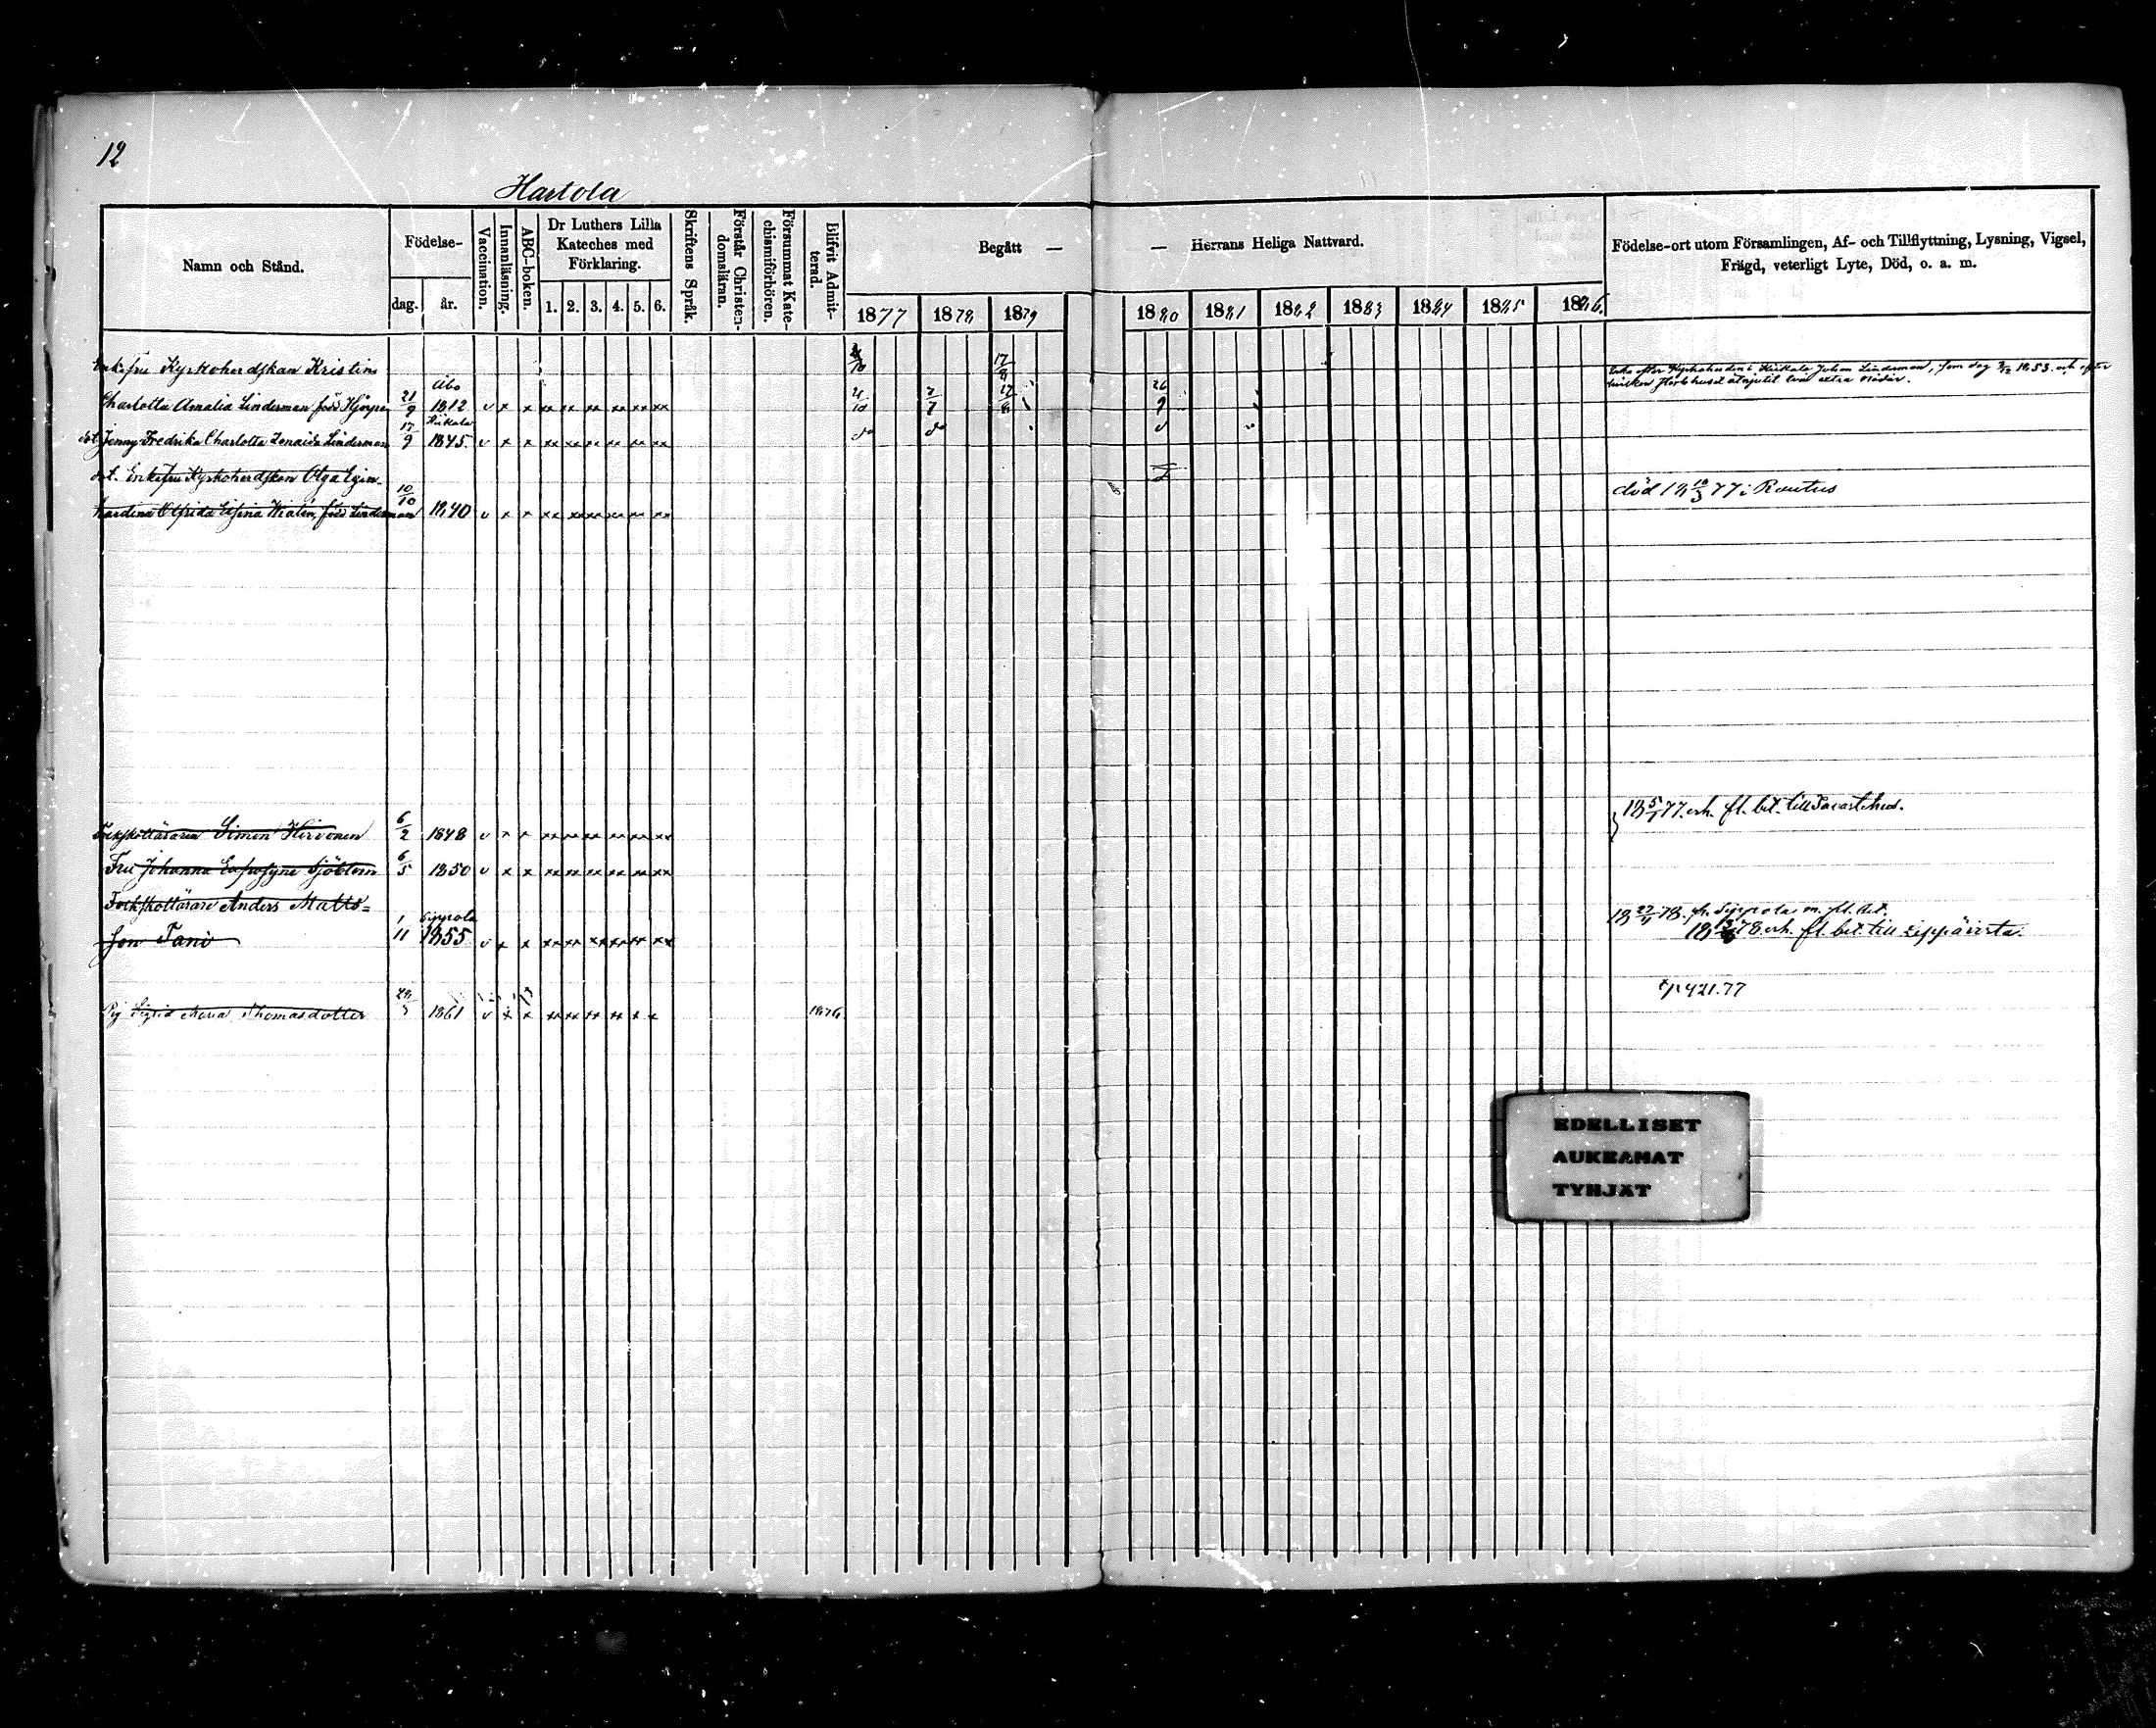 12
Hartola
Namn och Stånd.
Födelse-
dag.
år.
Vaccination.
Innanläsning.
ABC-boken.
Dr Luthers Lilla
Kateches med
Förklaring.
1. 2. 3. 4. 5. 6.
Skriftens Språk.
Förstår Christen-
domsläran.
Försummat Kate-
chismiförhören.
Blifvit Admit-
terad.
Begått — — Herrans Heliga Nattvard.
1877 1878 1879 1880 1881 1882 1883 1884 1885 1886.
Födelse-ort utom Församlingen, Af- och Tillflyttning, Lysning, Vigsel,
Frägd, veterligt Lyte, Död, o. a. m.
Enkefru Kyrkoherdskan Kristina 17/8
Enka efter Kyrkoherden i Kiikala Johan Linderman, som dog 1853. och efter
Åbo
Charlotta Amalia Linderman född 21/9 1812 v x x xx xx xx xx xx xx 7/7 17/8 26/9
Kiikala
dot. Jenny Fredrika Charlotta Zenaida Linderman 17/9 1845. v x x xx xx xx xx xx xx do do
dot. Enkefru Kyrkoherdskan Olga Egin-
hardina Olfrida Elfina Wialén, född Linderman 10/10 1840 v x x xx xx xx xx xx xx
död 18 10/3 77 i Rautus
Folkskolläraren Simon Hirvonen 6/2 1848 v x x xx xx xx xx xx xx
18 5/7 77. erh. fl. bet. till Tavastehus.
Fru Johanna Eufrosyne Sjöblom 6/5 1850 v x x xx xx xx xx xx xx
Folkskollärare Anders Matts=
Sippola
son Tani 1/11 1855 v x x xx xx xx xx xx xx
18 27/4 78. fr. Sippola m. fl. bet.
78 erh. fl. bet. till
Pig Sigrid Maria Thomasdotter 1861 v x x xx xx xx xx x x 1876.
421.77
EDELLISET
AUKEAMAT
TYHJÄT